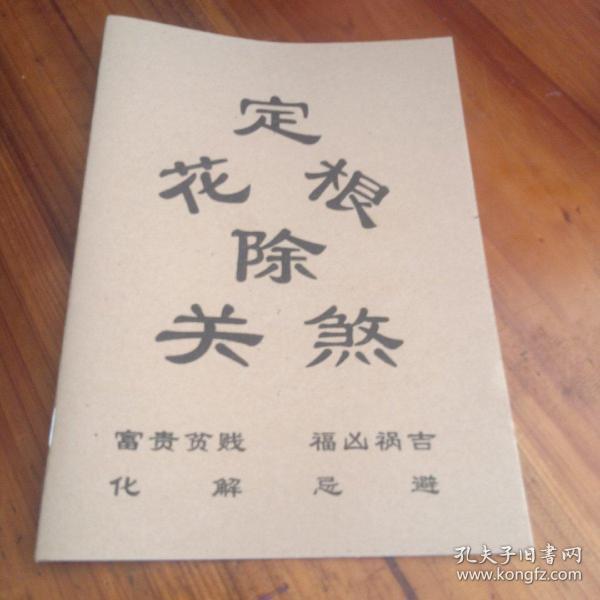 定
花 根
除
关 煞
富贵贫贱 福凶祸吉
化解 忌避
孔夫子旧书网
www.kongfz.com